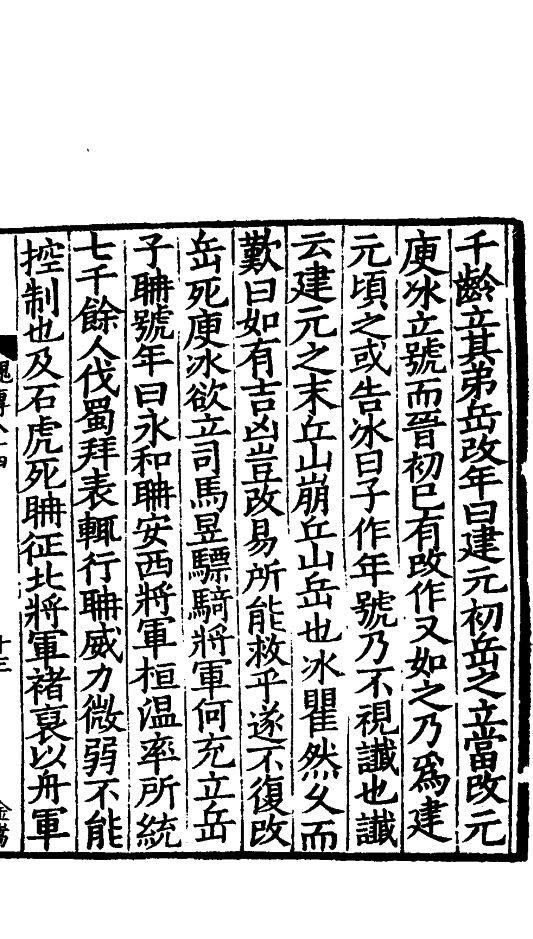 千齡立其弟岳改年曰建元初岳之立當改元
庾冰立號而晉初已有改作又如之乃爲建
元頃之或告冰曰子作年號乃不視讖也讖
云建元之末丘山崩丘山岳也冰瞿然久而
歎曰如有吉凶豈改易所能救乎遂不復改
岳死庾冰欲立司馬昱驃騎將軍何充立岳
子聃號年曰永和聃安西將軍桓温率所統
七千餘人伐蜀拜表輒行聃威力微弱不能
控制也及石虎死聃征北將軍褚裒以舟軍
十三